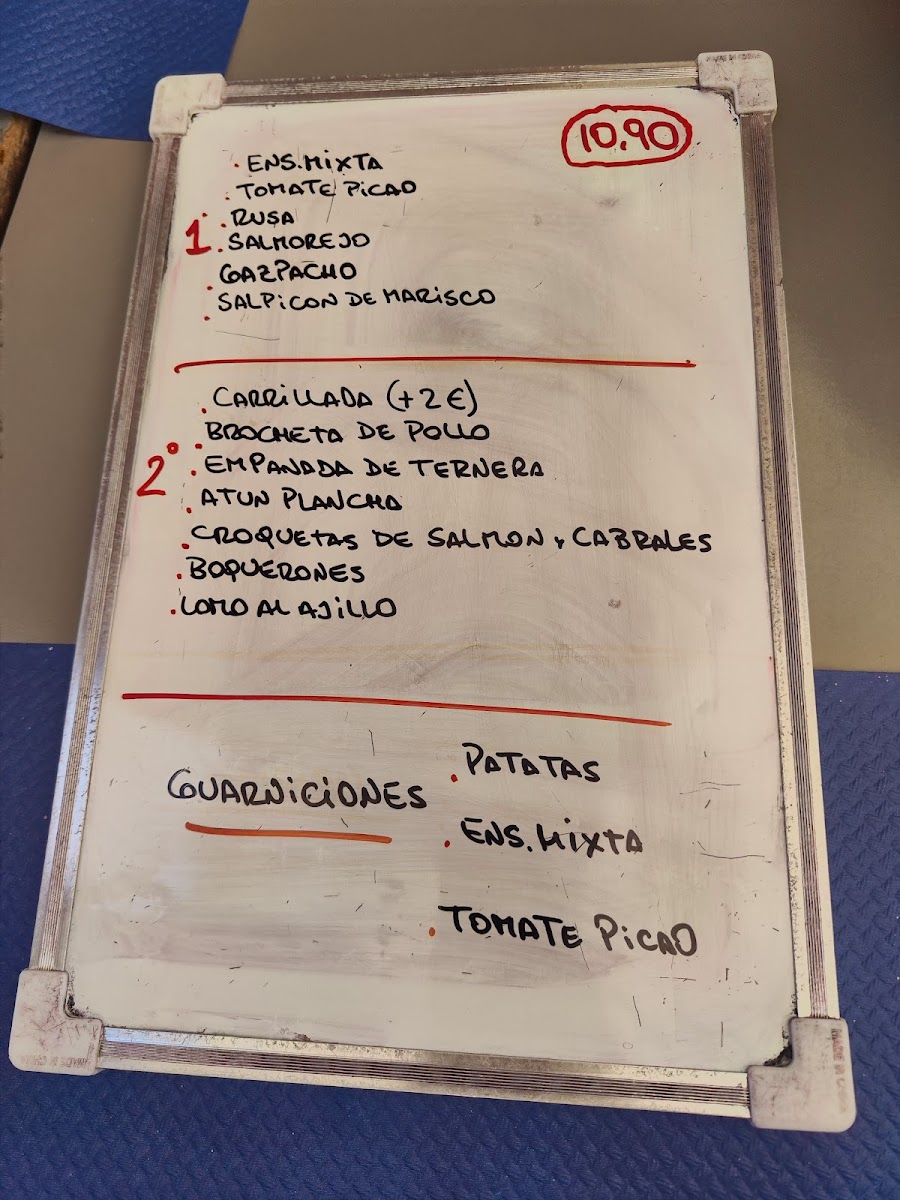 10.90
ENS.MIXTA
TOMATE PICAO
RUSA
1. SALMOREJO
GAZPACHO
SALPICON DE MARISCO
CARRILLADA (+2€)
BROCHETA DE POLLO
2º EMPANADA DE TERNERA
ATUN PLANCHA
CROQUETAS DE SALMON Y CABRALES
BOQUERONES
LOMO AL AJILLO
GUARNICIONES
PATATAS
ENS.MIXTA
TOMATE PICAO